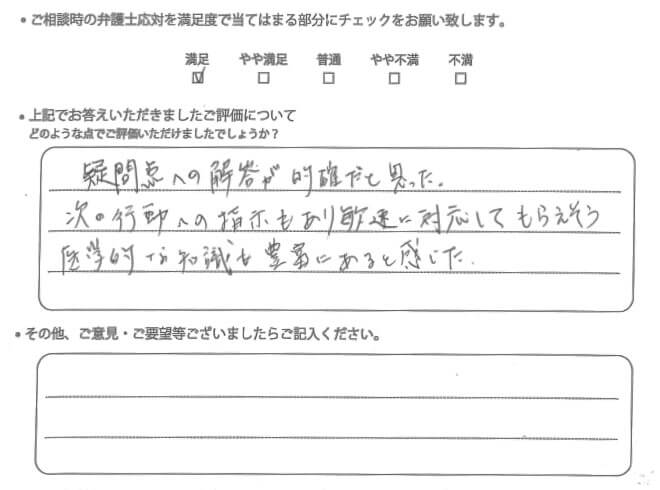 • ご相談時の弁護士応対を満足度で当てはまる部分にチェックをお願い致します。
満足 やや満足 普通 やや不満 不満
☑ ☐ ☐ ☐ ☐
• 上記でお答えいただきましたご評価について
どのような点でご評価いただけましたでしょうか?
疑問点への解答が的確だと思った。
次の行動への指示もあり敏速に対応してもらえそう
医学的な知識も豊富にあると感じた。
• その他、ご意見・ご要望等ございましたらご記入ください。